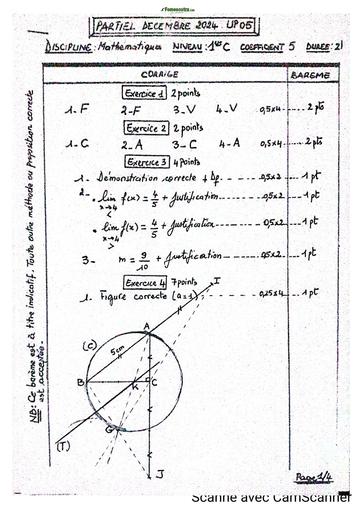 Fomesoutra.com
PARTIEL DECEMBRE 2024 UP05
DISCIPLINE: Mathématiques NIVEAU: 1ère C COEFFICIENT 5 DUREE: 2
CORRIGE BAREME
Exercice 1 2 points
1-F 2-F 3-V 4-V 0,5x4 2 pts
Exercice 2 2 points
1-C 2-A 3-C 4-A 0,5x4 2 pts
Exercice 3 4 points
1- Démonstration correcte + Df 0,5x2 1 pt
2- • lim f(x) = 4/5 + justification 0,5x2 1 pt
x→4
<
• lim f(x) = 4/5 + justification 0,5x2 1 pt
x→4
>
3- m = 9/10 + justification 0,5x2 1 pt
Exercice 4 7 points
1- Figure correcte (a=1) 0,25x4 1 pt
I
A
(C)
5cm
B
K
C
G
(T)
J
NB: Ce barème est à titre indicatif. Toute autre méthode ou proposition correcte
est acceptée.
Page 1/4
Scanné avec CamScanner